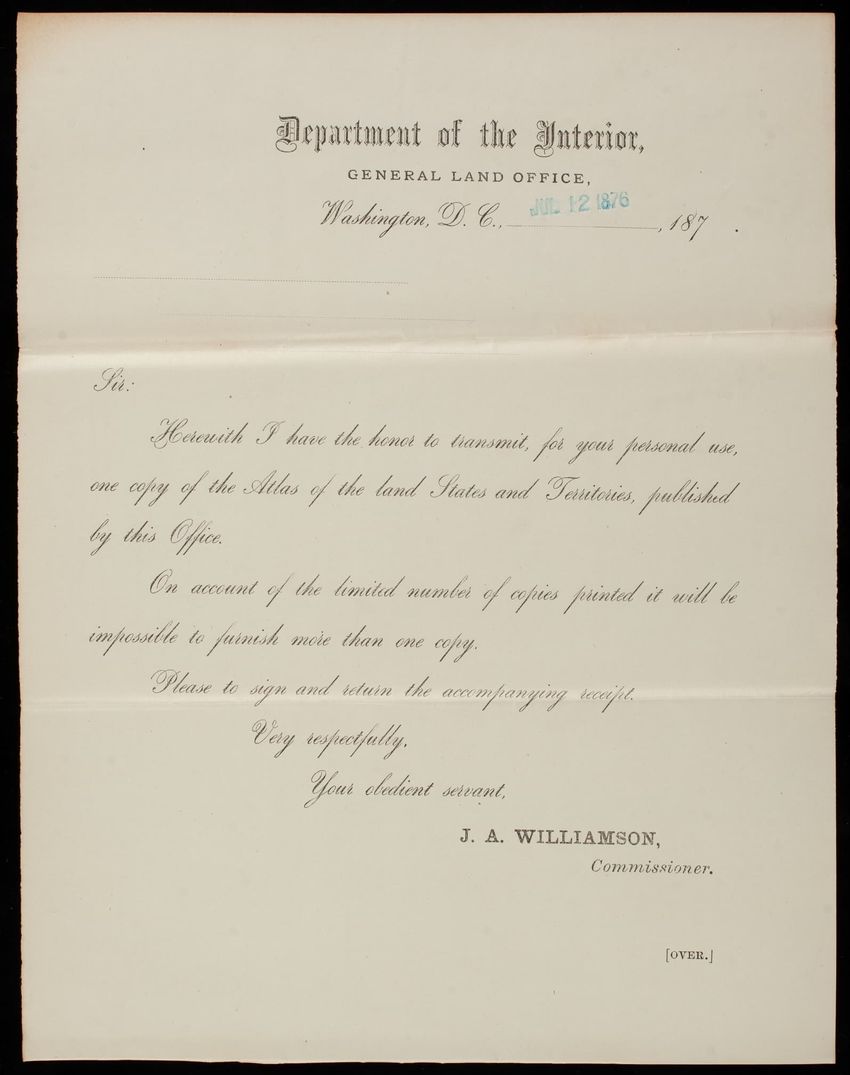 Department of the Interior,
GENERAL LAND OFFICE,
Washington, D. C., JUL 12 1876, 187 .
Sir:
Herewith I have the honor to transmit, for your personal use,
one copy of the Atlas of the land States and Territories, published
by this Office.
On account of the limited number of copies printed it will be
impossible to furnish more than one copy.
Please to sign and return the accompanying receipt.
Very respectfully,
Your obedient servant,
J. A. WILLIAMSON,
Commissioner.
[OVER.]